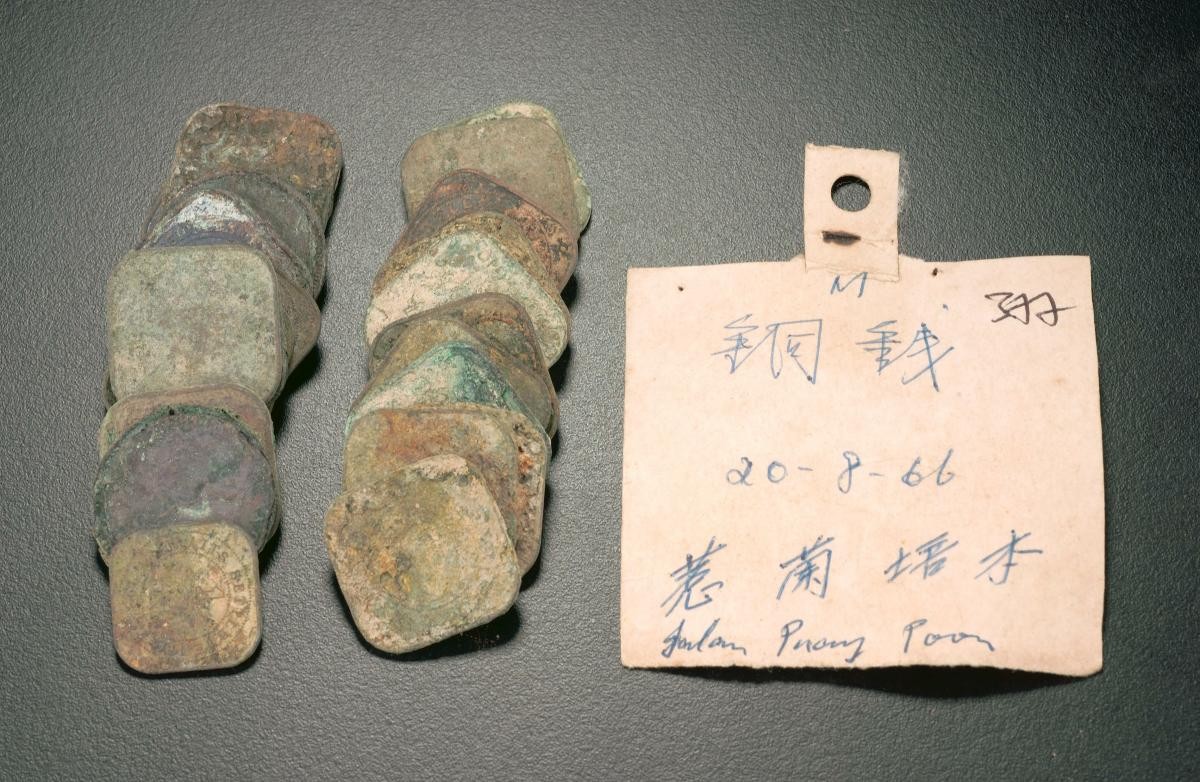 M
銅錢
20-8-66
惹蘭培本
Jalan Puay Poon